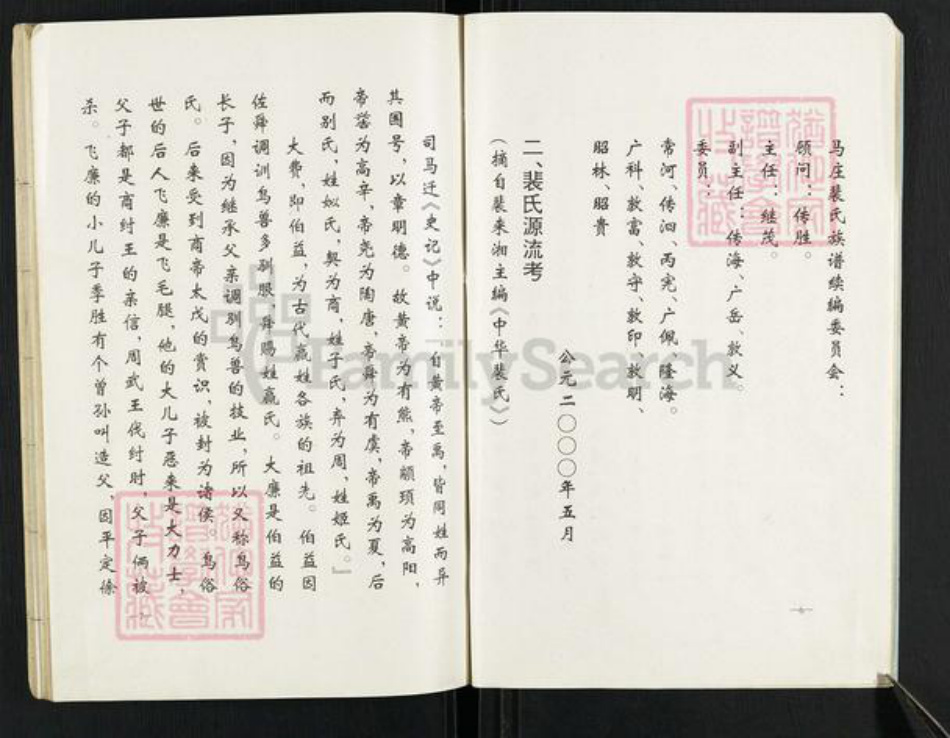 马庄裴氏族谱续编委员会：
顾问：传胜。
主任：继茂。
副主任：传海、广岳、敦义。
委员：
常河、传汩、丙宪、广佩、隆海。
广科、敦富、敦守、敦印、敦明、
昭林、昭贵
公元二〇〇〇年五月
二、裴氏源流考
（摘自裴来湘主编《中华裴氏》）
司马迁《史记》中说：「自黄帝至禹，皆同姓而异
其国号，以章明德。故黄帝为有熊，帝颛顼为高阳，
帝喾为高辛，帝尧为陶唐，帝舜为有虞，帝禹为夏，后
而别氏，姓姒氏，契为商，姓子氏，弃为周，姓姬氏。」
大费，即伯益，为古代嬴姓各族的祖先。伯益因
佐舜调训鸟兽多驯服，舜赐姓嬴氏。大廉是伯益的
长子，因为继承父亲调驯鸟兽的技业，所以又称鸟俗
氏。后来受到商帝太戊的赏识，被封为诸侯。鸟俗
世的后人飞廉是飞毛腿，他的大儿子恶来是大力士，
父子都是商纣王的亲信，周武王伐纣时，父子俩被
杀。飞廉的小儿子季胜有个曾孙叫造父，因平定徐
FamilySearch